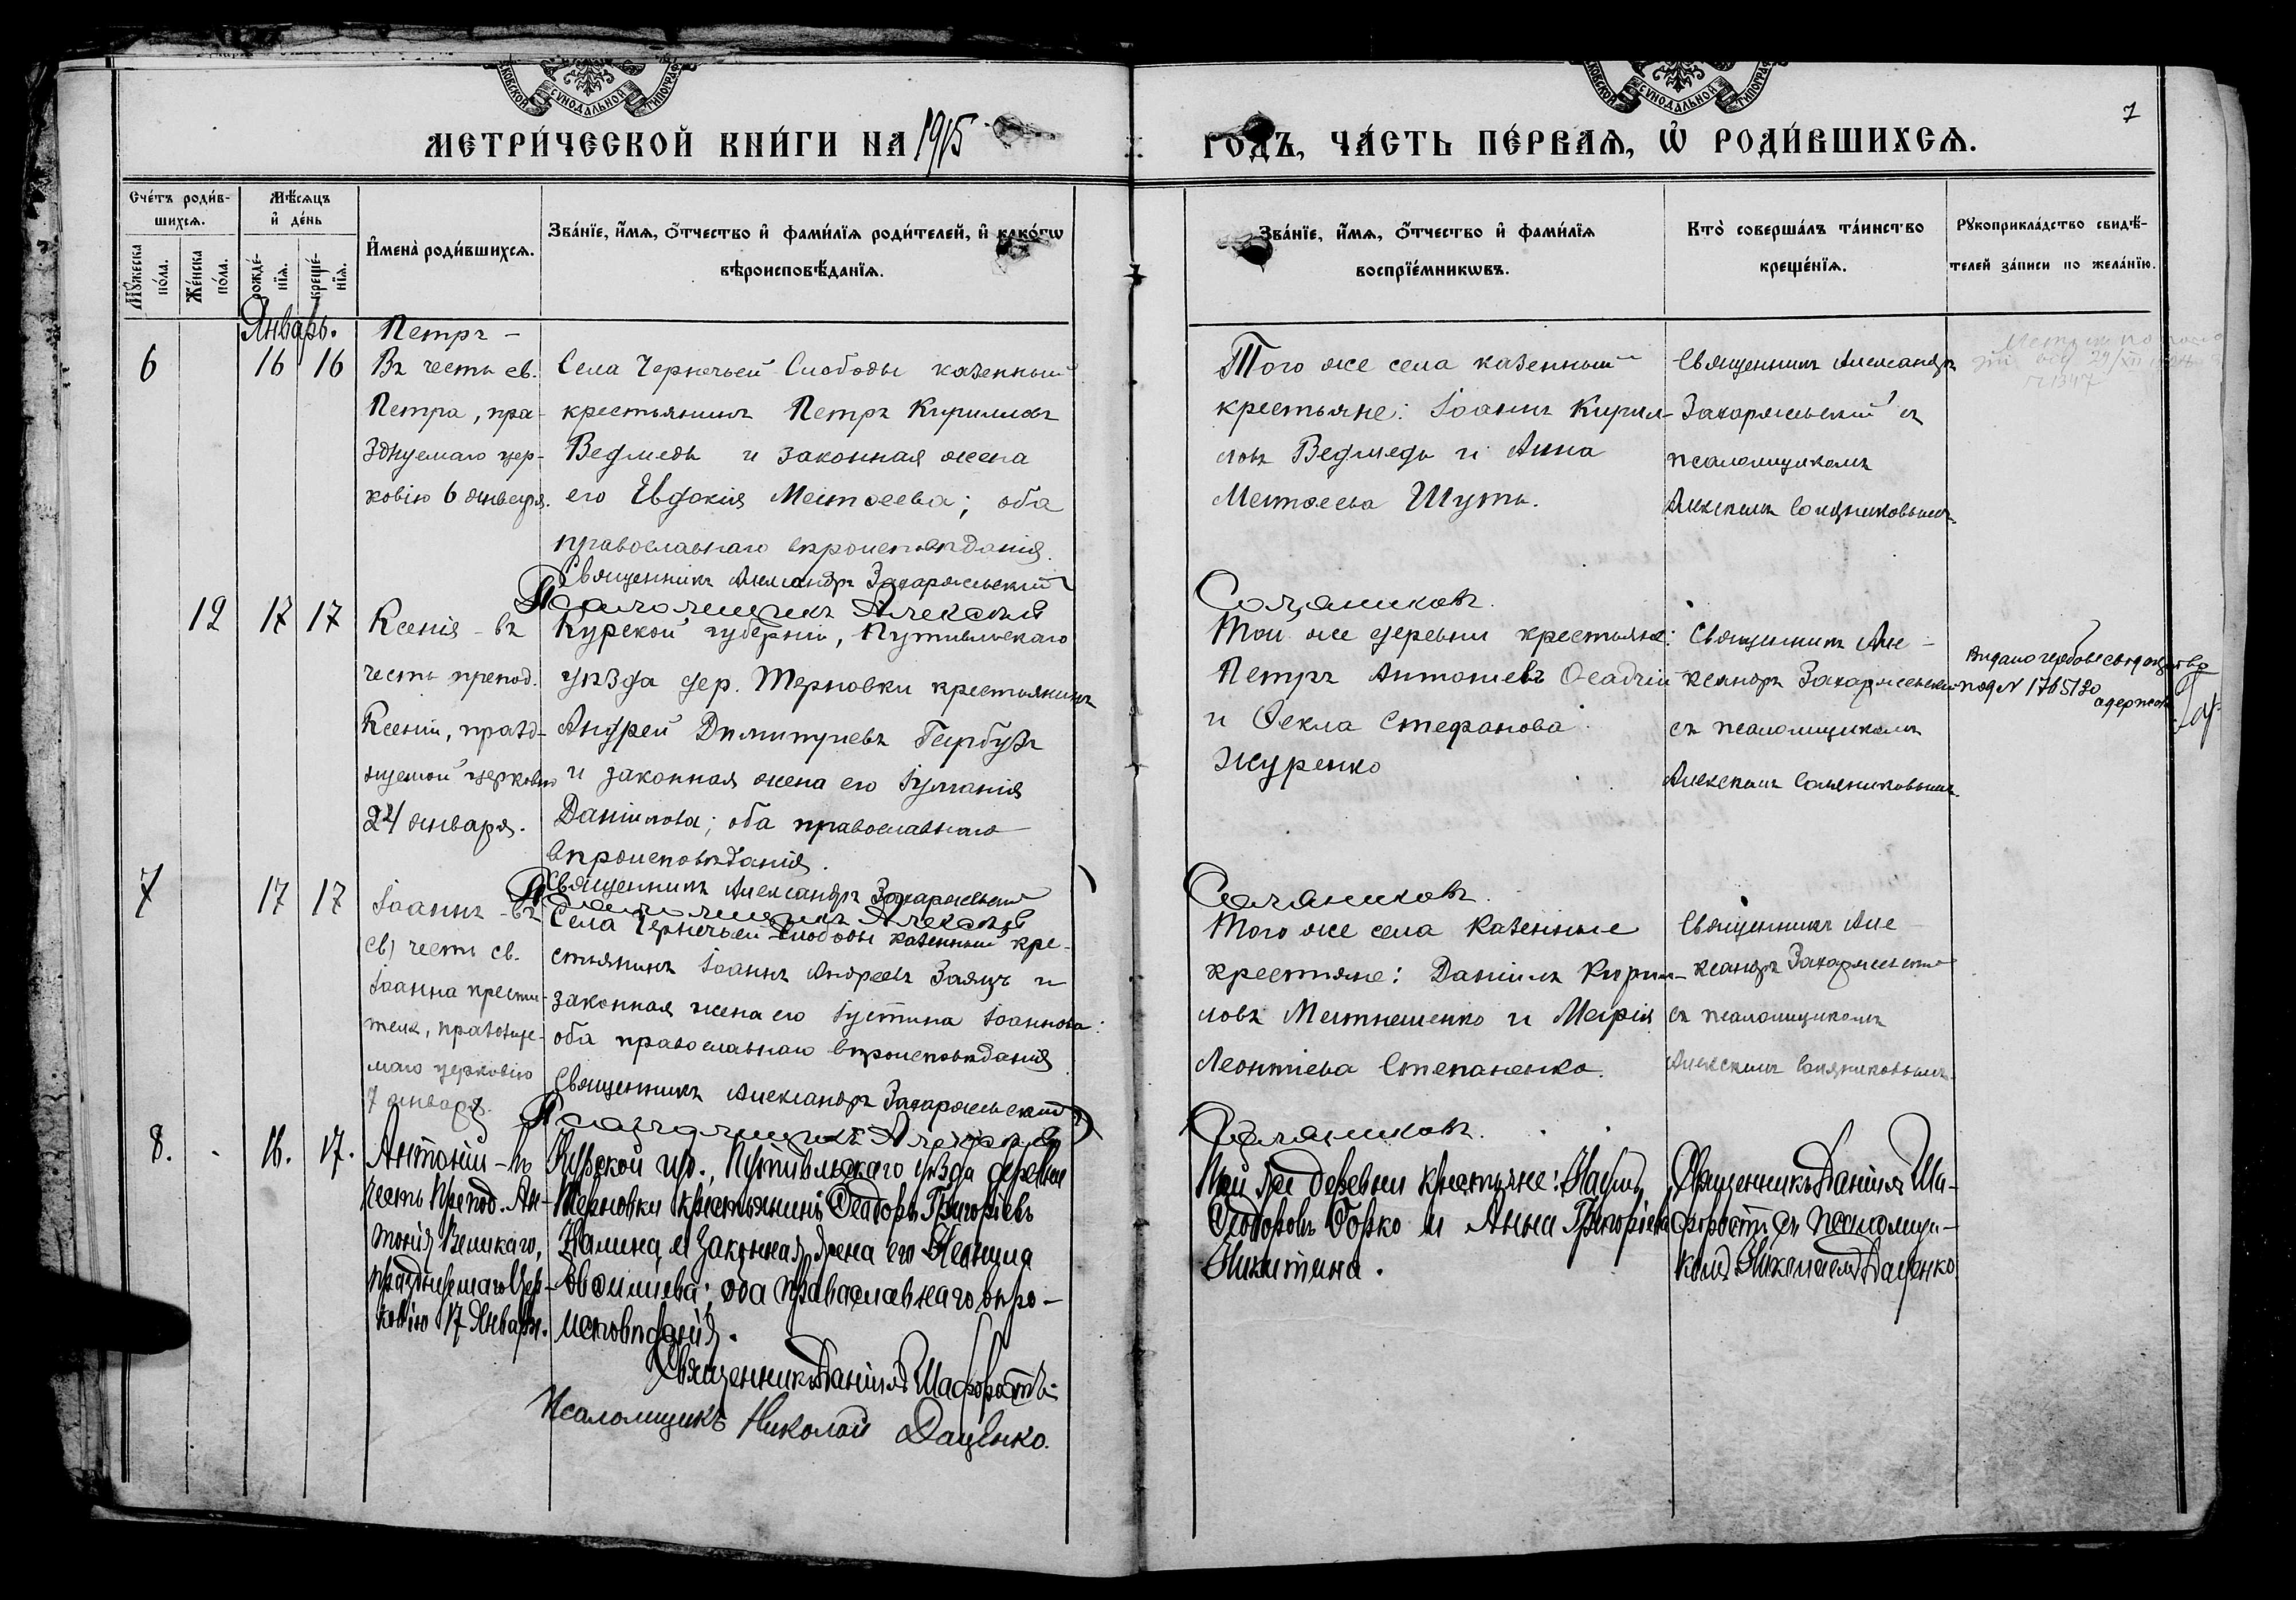 МЕТРИ́ЧЕСКОЙ КНИ́ГИ НА 1915
ГОДЪ, ЧА́СТЬ ПЕ́РВАѦ, Ѡ҆ РОДИ́ВШИХСѦ.
7
Сче́тъ роди́в-
шихсѧ.
Мꙋ́жеска по́ла.
Же́нска по́ла.
Мѣ́сѧцъ
и҆ де́нь
рожде́-
нїѧ.
креще́-
нїѧ.
И҆мена̀ роди́вшихсѧ.
Зва́нїе, и҆́мѧ, ѻ҆́тчество и҆ фами́лїѧ роди́телей, и҆ како́гѡ
вѣроисповѣ́данїѧ.
Зва́нїе, и҆́мѧ, ѻ҆́тчество и҆ фами́лїѧ
воспрїе́мникѡвъ.
Кто̀ соверша́лъ та́инство
креще́нїѧ.
Рꙋкоприкла́дство свидѣ́-
телей за́писи по жела́нїю.
Январь.
6 16 16
Петръ –
Въ честь св.
Петра, пра-
зднуемаго цер-
ковію 6 января.
Села Чернечьей Слободы казенный
крестьянинъ Петръ Кирилловъ
Ведмедь и законная жена
его Евдокія Матѳеева; оба
православнаго вѣроисповѣданія.
Священникъ Александръ Захаржевскій
Псаломщикъ Алексѣй
Того же села казенный
крестьяне: Іоаннъ Кирил-
ловъ Ведмедь и Анна
Матѳеева Шуть.
Соляниковъ.
Священникъ Александръ
Захаржевскій съ
псаломщикомъ
Алексѣемъ Соляниковымъ.
12 17 17
Ксенія – въ
честь препод.
Ксеніи, празд-
нуемой церковію
24 января.
Курской губерніи, Путивльскаго
уѣзда дер. Терновки крестьянинъ
Андрей Димитріевъ Гарбузъ
и законная жена его Іуліанія
Даніилова; оба православнаго
вѣроисповѣданія.
Священникъ Александръ Захаржевскій
Псаломщикъ Алексѣй
Той же деревни крестьяне:
Петръ Антоніевъ Осадчій
и Ѳекла Стефанова
Журенко
Соляниковъ.
Священникъ Але-
ксандръ Захаржевскій
съ псаломщикомъ
Алексѣемъ Соляниковымъ.
под № 1765120
7 17 17
Іоаннъ – въ
честь св.
Іоанна Крести-
теля, празднуе-
маго церковію
7 января.
Села Чернечьей Слободы казенный кре-
стьянинъ Іоаннъ Андреевъ Заяцъ и
законная жена его Іустина Іоаннова:
оба православнаго вѣроисповѣданія
Священникъ Александръ Захаржевскій
Псаломщикъ Алексѣй
Того же села казенные
крестяне: Даніилъ Кирил-
ловъ Матюшенко и Марія
Леонтіева Степаненко.
Соляниковъ.
Священникъ Але-
ксандръ Захаржевскій
съ псаломщикомъ
Алексѣемъ Соляниковымъ.
8. 16. 17.
Антоній – въ
честь Препод. Ан-
тонія Великаго,
празднуемаго Цер-
ковію 17 Января.
Курской губ., Путивльскаго уѣзда деревни
Терновки крестьянинъ Ѳеодоръ Григоріевъ
Калина и законная жена его
оба православнаго вѣро-
исповѣданія.
Священникъ Даніилъ Шафоростъ
Псаломщикъ Николай Даценко.
Той же деревни крестьяне: Наумъ
Ѳеодоровъ Божко и Анна Григоріева
Никитина.
Священникъ Даніилъ Ша-
форостъ съ псаломщи-
комъ Николаемъ Даценко